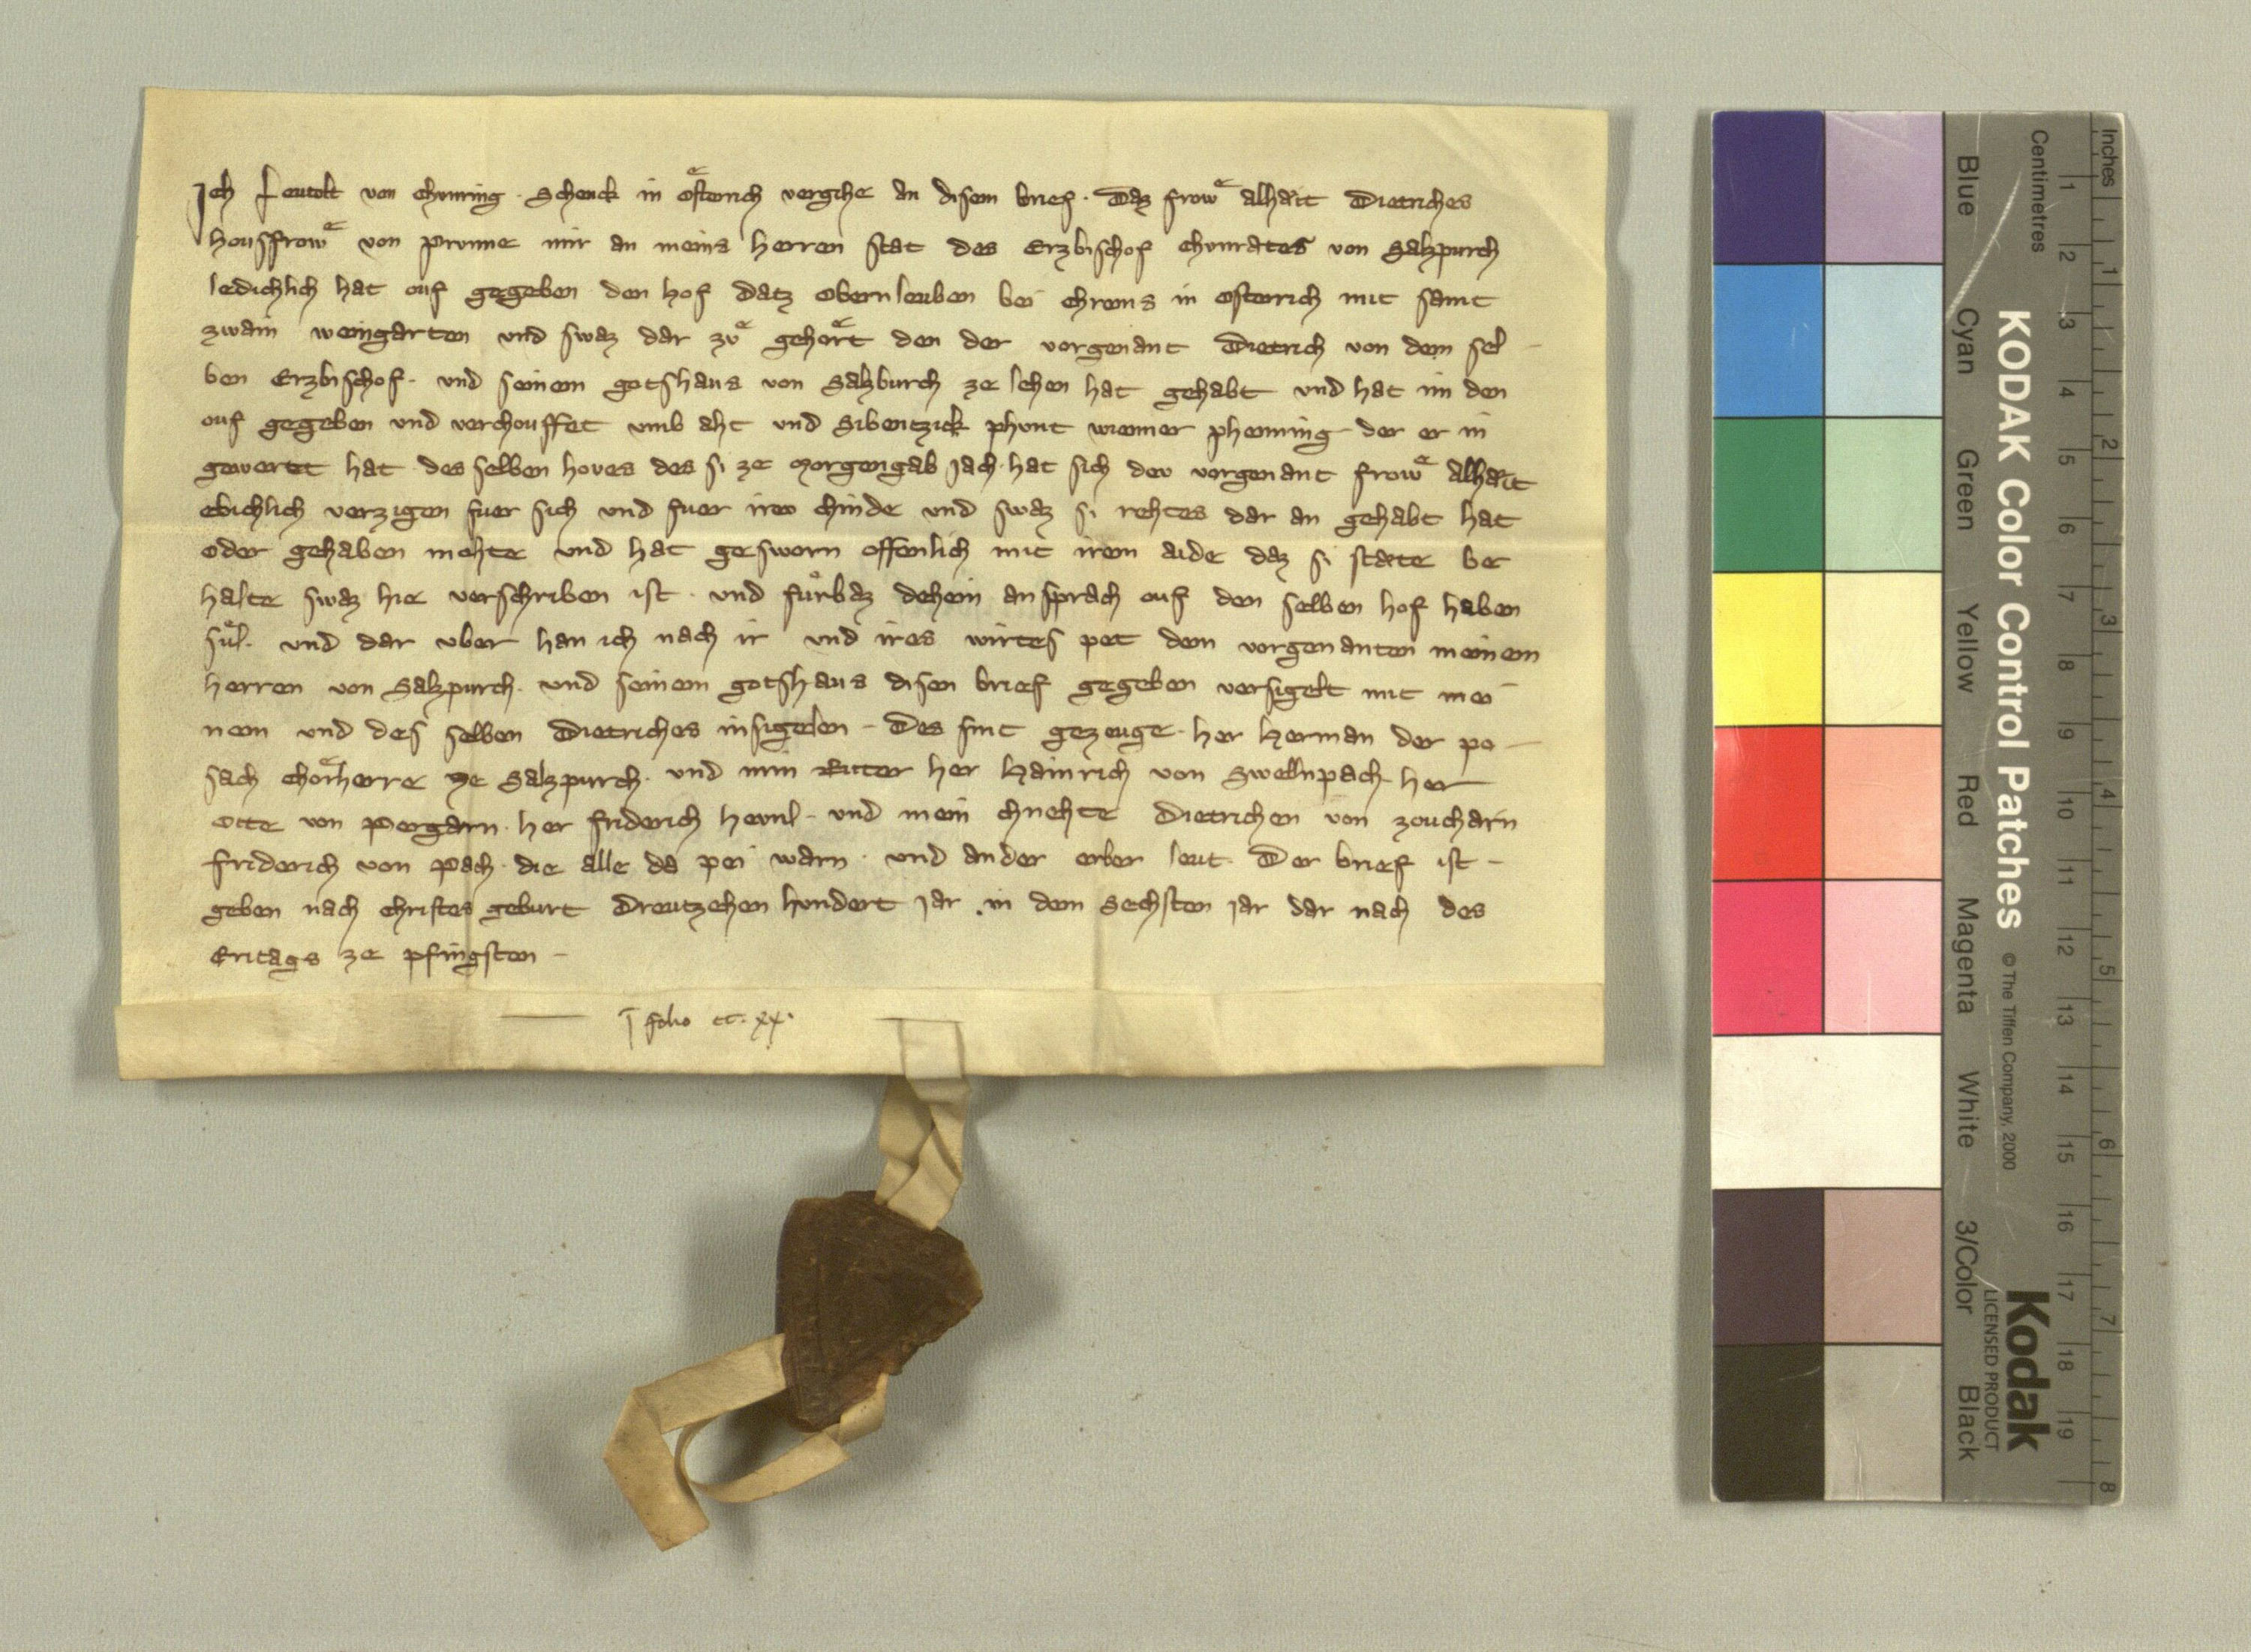 Ich Leutolt von Chunring · Schenck in Oͤsterich vergihe an disem brief · Daz frowͤ Alhait Dietriches
housfrowͤ von Prunne mir an meins herren stat des Erzbischof Chunrates von Salzpurch
ledichlich hat ouf gegeben den hof datz Obernleuben bei Chrems in Osterrich mit samt
zwain weingarten vnd swaz dar zvͤ gehoͤrt den der vorgenant Dietrich von dem sel -
ben Erzbischof · vnd seinem gotshaus von Salzburch ze lehen hat gehabt vnd hat im den
ouf gegeben vnd verchouffet vmb aht vnd Sibentzick phunt wienner phenning der er in
gewertet hat des selben houes des si ze Morgengab Jach · hat sich dev vorgenant frowͤ Alhait
ebichlich verzigen fuer sich vnd fuer irev chinde vnd swaz si rehtes dar an gehabt hat
oder gehaben mohte vnd hat gesworn offenlich mit irem aide daz si state be
halte swaz hie verschriben ist · vnd fuͤrbaz dehein ansprach ouf den selben hof haben
suͤl · vnd dar vber han ich nach ir vnd ires wirtes pet dem vorgenanten meinem
herren von Salzpurch · vnd seinem gotshaus disen brief gegeben versigelt mit mei
nem vnd des selben Dietriches insigelen - Des sint gezeuge · her Herman der po -
sach Choͤrherre ze Salzpurch · vnd min Ritter her Hainrich von Swellnpach her
Otte von Pergarn · her friderich hevnl - vnd mein chnehte Dietrichen von zoucharn
friderich von Pach · die alle da pei warn · vnd ander erber leut · Der brief ist -
geben nach Christes geburt Dreutzehen hundert Jar · in dem Sechsten Jar dar nach des
Eritags ze pfingsten -
J folio cc. xx.
KODAK Color Control Patches © The Tiffen Company, 2000 Kodak
LICENSED PRODUCT
Blue Cyan Green Yellow Red Magenta White 3/Color Black
Centimetres 1 2 3 4 5 6 7 8 9 10 11 12 13 14 15 16 17 18 19
Inches 1 2 3 4 5 6 7 8